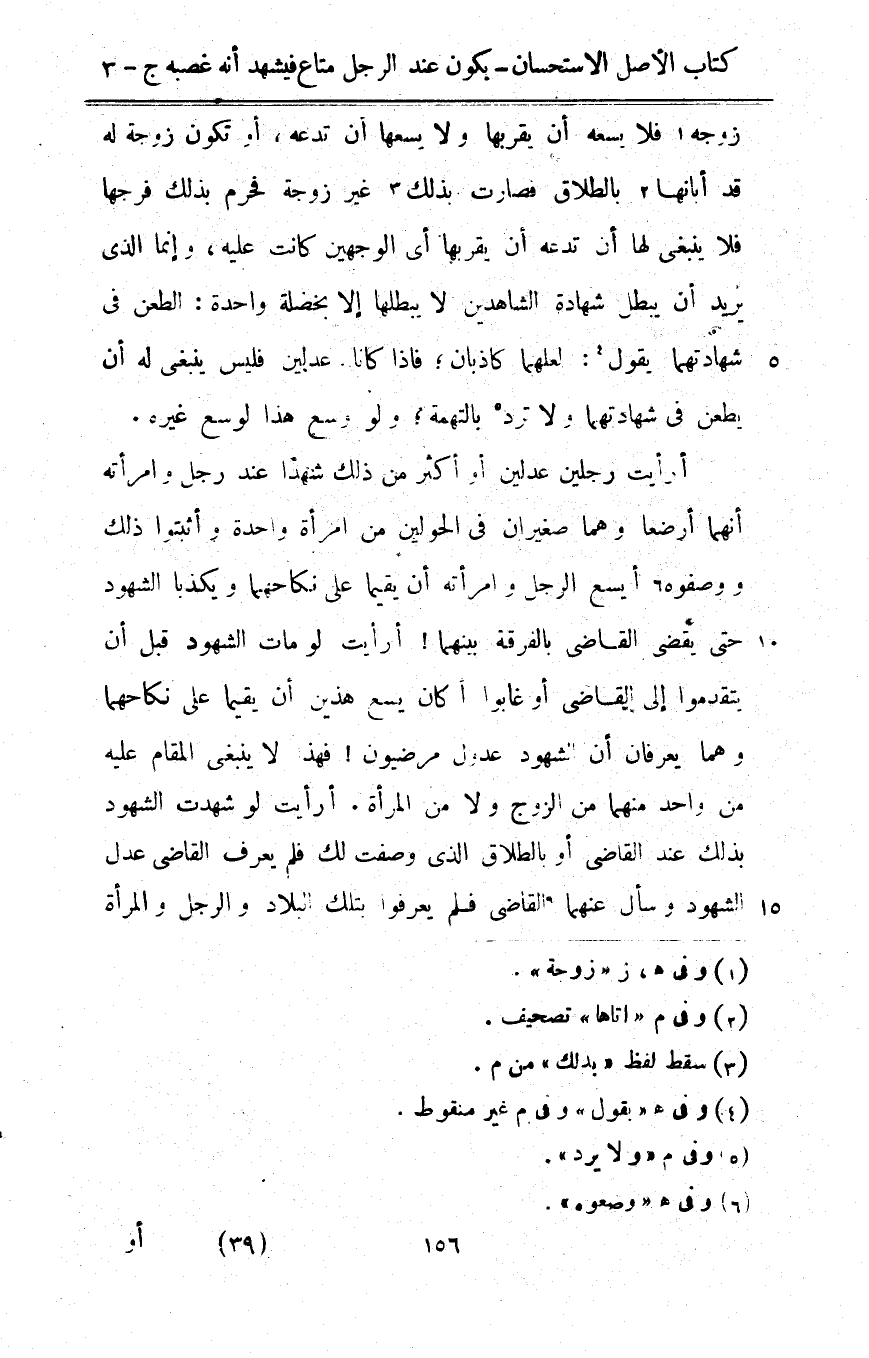 كتاب الأصل الاستحسان - يكون عند الرجل متاع فيشهد أنه غصبه ج - ٣
زوجه ١ فلا يسعه أن يقربها ولا يسعها أن تدعه ، أو تكون زوجة له
قد أبانها ٢ بالطلاق فصارت بذلك ٣ غير زوجة فحرم بذلك فرجها
فلا ينبغى لها أن تدعه أن يقربها أى الوجهين كانت عليه ، و إنما الذى
يُريد أن يبطل شهادة الشاهدين لا يبطلها إلا بخصلة واحدة : الطعن فى
٥ شهادتهما يقول ٤ : لعلهما كاذبان ؛ فاذا كانا عدلين فليس ينبغى له أن
يطعن فى شهادتهما و لا ترد ٥ بالتهمة ؛ و لو وسع هذا لوسع غيره .
أ رأيت رجلين عدلين أو أكثر من ذلك شهدا عند رجل و امرأته
أنهما أرضعا و هما صغيران فى الحولين من امرأة واحدة و أثبتوا ذلك
و وصفوه ٦ أ يسع الرجل و امرأته أن يقيما على نكاحهما و يكذبا الشهود
١٠ حتى يقضى القاضى بالفرقة بينهما ! أ رأيت لو مات الشهود قبل أن
يتقدموا إلى القاضى أو غابوا أ كان يسع هذين أن يقيما على نكاحهما
و هما يعرفان أن الشهود عدول مرضيون ! فهذا لا ينبغى المقام عليه
من واحد منهما من الزوج و لا من المرأة . أ رأيت لو شهدت الشهود
بذلك عند القاضى أو بالطلاق الذى وصفت لك فلم يعرف القاضى عدل
١٥ الشهود و سأل عنهما القاضى فلم يعرفوا بتلك البلاد و الرجل و المرأة
(١) و فى ه ، ز «زوجة» .
(٢) و فى م «اتاها» تصحيف .
(٣) سقط لفظ «بذلك» من م .
(٤) و فى ه «بقول» و فى م غير منقوط .
(٥) و فى م «و لا يرد» .
(٦) و فى ه «وصعوه» .
١٥٦ (٣٩) أو